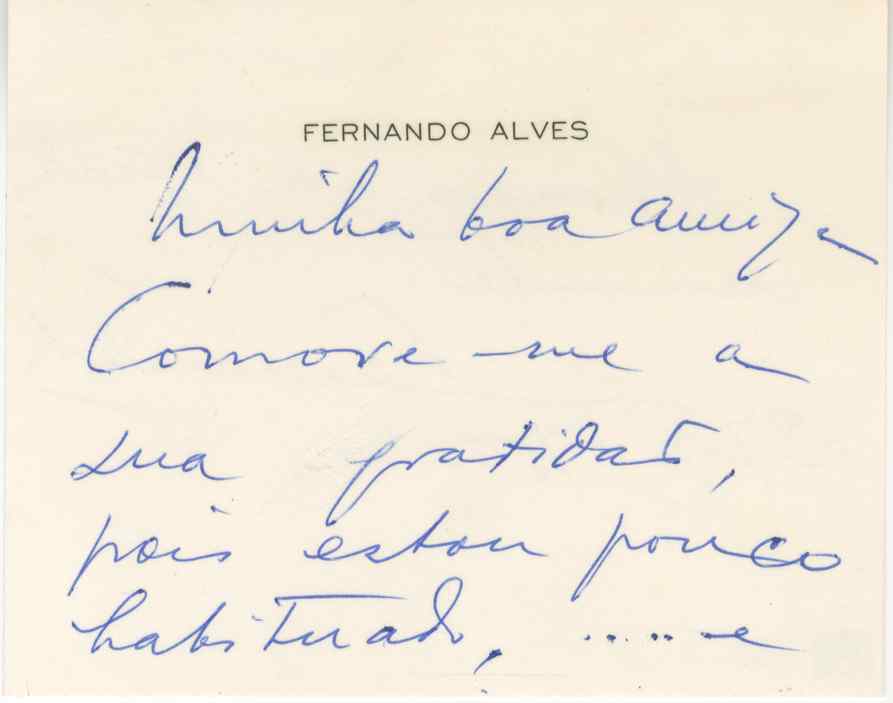 FERNANDO ALVES
Minha boa amiga
Comove-me a
sua gratidão,
pois estou pouco
habituado, ..... e